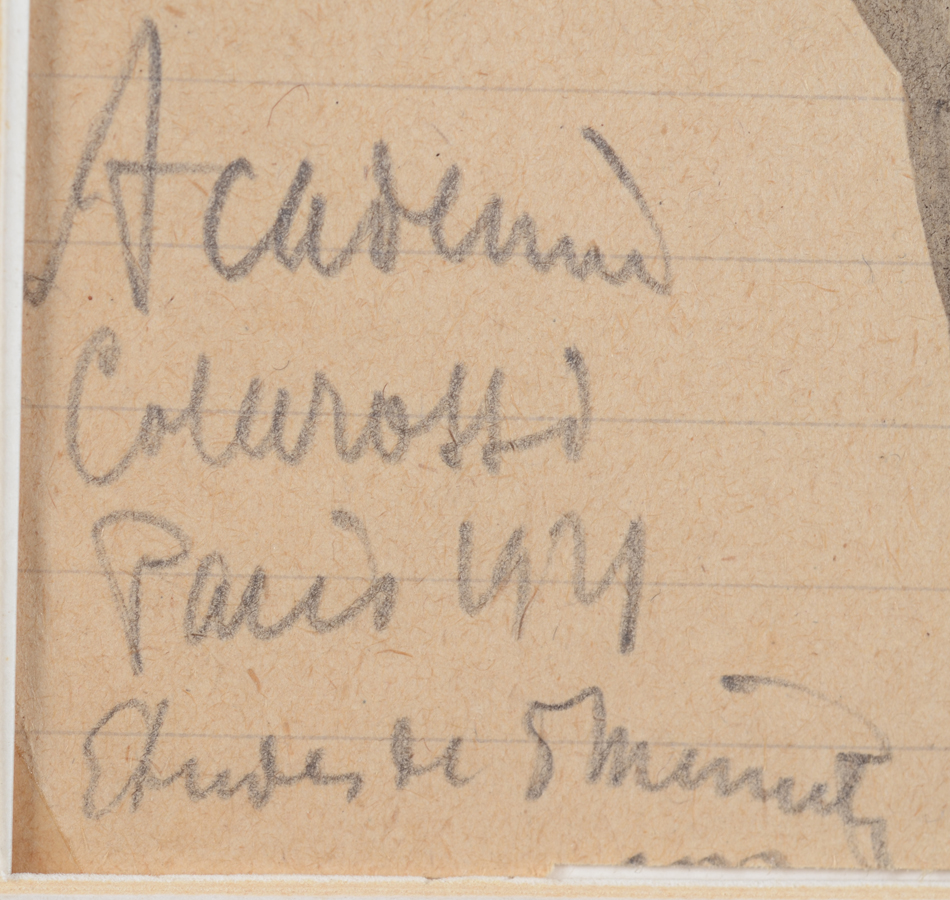 Academie
Colarossi
Paris
Etudes de 5 Minutes